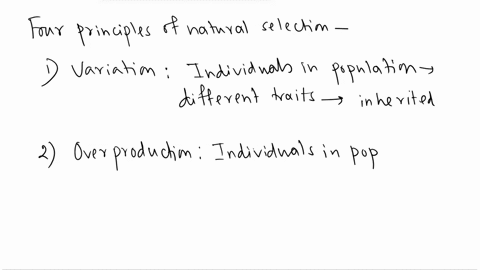 Four principles of natural selection —
1) Variation : Individuals in population →
different traits → inherited
2) Overproduction : Individuals in pop